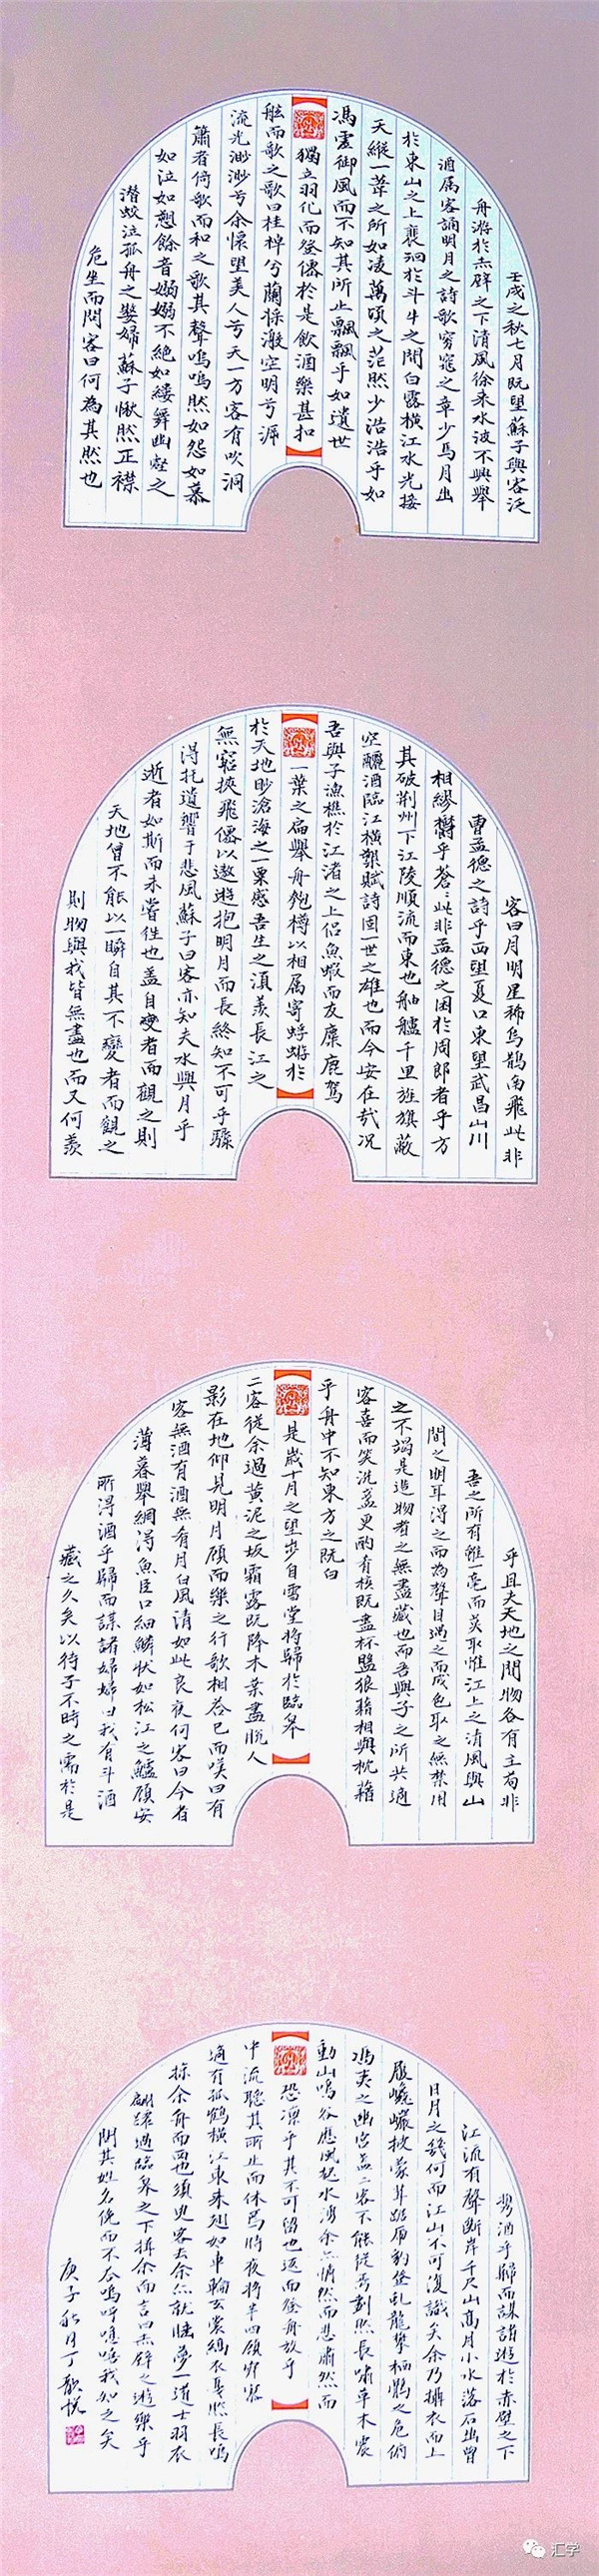 壬戌之秋七月既望蘇子與客泛
舟游於赤壁之下清風徐來水波不興舉
酒属客誦明月之詩歌窈窕之章少焉月出
於東山之上裵洄於斗牛之間白露横江水光接
天縱一葦之所如凌萬頃之茫然少浩浩乎如
馮虚御風而不知其所止飄飄乎如遺世
獨立羽化而登僊於是飲酒樂甚扣
舷而歌之歌曰桂棹兮蘭槳激空明兮泝
流光渺渺兮余懷望美人兮天一方客有吹洞
簫者倚歌而和之歌其聲嗚嗚然如怨如慕
如泣如愬餘音嫋嫋不絶如縷舞幽壑之
潜蛟泣孤舟之嫠婦蘇子愀然正襟
危坐而問客曰何為其然也
客曰月明星稀烏鵲南飛此非
曹孟德之詩乎西望夏口東望武昌山川
相繆欝乎蒼〻此非孟德之困於周郎者乎方
其破荆州下江陵順流而東也舳艫千里旌旗蔽
空釃酒臨江横槊賦詩固一世之雄也而今安在哉况
吾與子漁樵於江渚之上侣魚蝦而友麋鹿駕
一葉之扁舉舟匏樽以相属寄蜉蝣於
於天地眇滄海之一粟哀吾生之須羨長江之
無窮挾飛僊以遨遊抱明月而長終知不可乎驟
得托遺響于悲風蘇子曰客亦知夫水與月乎
逝者如斯而未嘗往也盖自變者而觀之則
天地曾不能以一瞬自其不變者而觀之
則物與我皆無盡也而又何羨
乎且夫天地之間物各有主苟非
吾之所有雖一毫而莫取惟江上之清風與山
間之明耳得之而為聲目遇之而成色取之無禁用
之不竭是造物者之無盡藏也而吾與子之所共適
客喜而笑洗盏更酌肴核既盡杯盤狼藉相與枕藉
乎舟中不知東方之既白
是歲十月之望步自雪堂將歸於臨皋
二客從余過黄泥之坂霜露既降木葉盡脱人
影在地仰見明月顧而樂之行歌相荅已而嘆曰有
客無酒有酒無肴月白風清如此良夜何客曰今者
薄暮舉網得魚巨口細鱗状如松江之鱸顧安
所得酒乎歸而謀諸婦婦曰我有斗酒
藏之久矣以待子不時之需於是
携酒乎歸而謀諸遊於赤壁之下
江流有聲断岸千尺山髙月小水落石出曾
日月之幾何而江山不可復識矣余乃攝衣而上
履巉巖披蒙茸踞虎豹登虬龍攀栖鶻之危俯
馮夷之幽宫盖二客不能從焉劃然長嘯草木震
動山鳴谷應風起水湧余亦悄然而悲肅然而
恐凛乎其不可留也返而登舟放乎
中流聽其所止而休焉時夜將半四顧寂寥
適有孤鶴横江東来翅如車輪玄裳縞衣戛然長鳴
掠余舟而西也須臾客去余亦就睡夢一道士羽衣
翩躚過臨皋之下揖余而言曰赤壁之遊樂乎
問其姓名俛而不荅嗚呼噫嘻我知之矣
庚子秋月丁歡悦
汇学